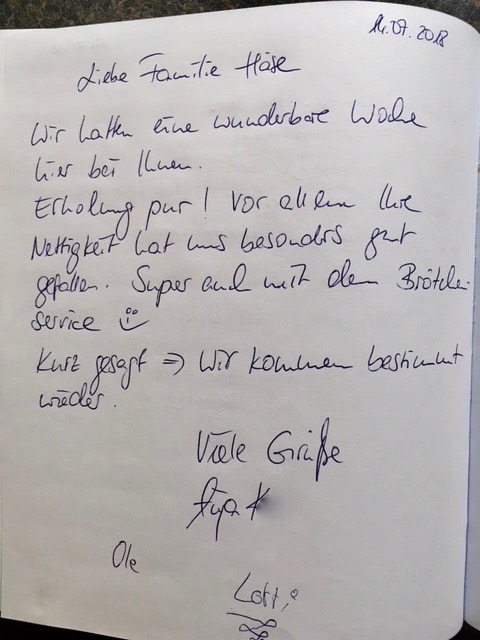 14.07.2018
Liebe Familie Häse
Wir hatten eine wunderbare Woche
hier bei Ihnen.
Erholung pur! Vor allem Ihre
Nettigkeit hat uns besonders gut
gefallen. Super auch mit dem Brötchen-
service
Kurz gesagt => Wir kommen bestimmt
wieder.
Viele Grüße
Ole